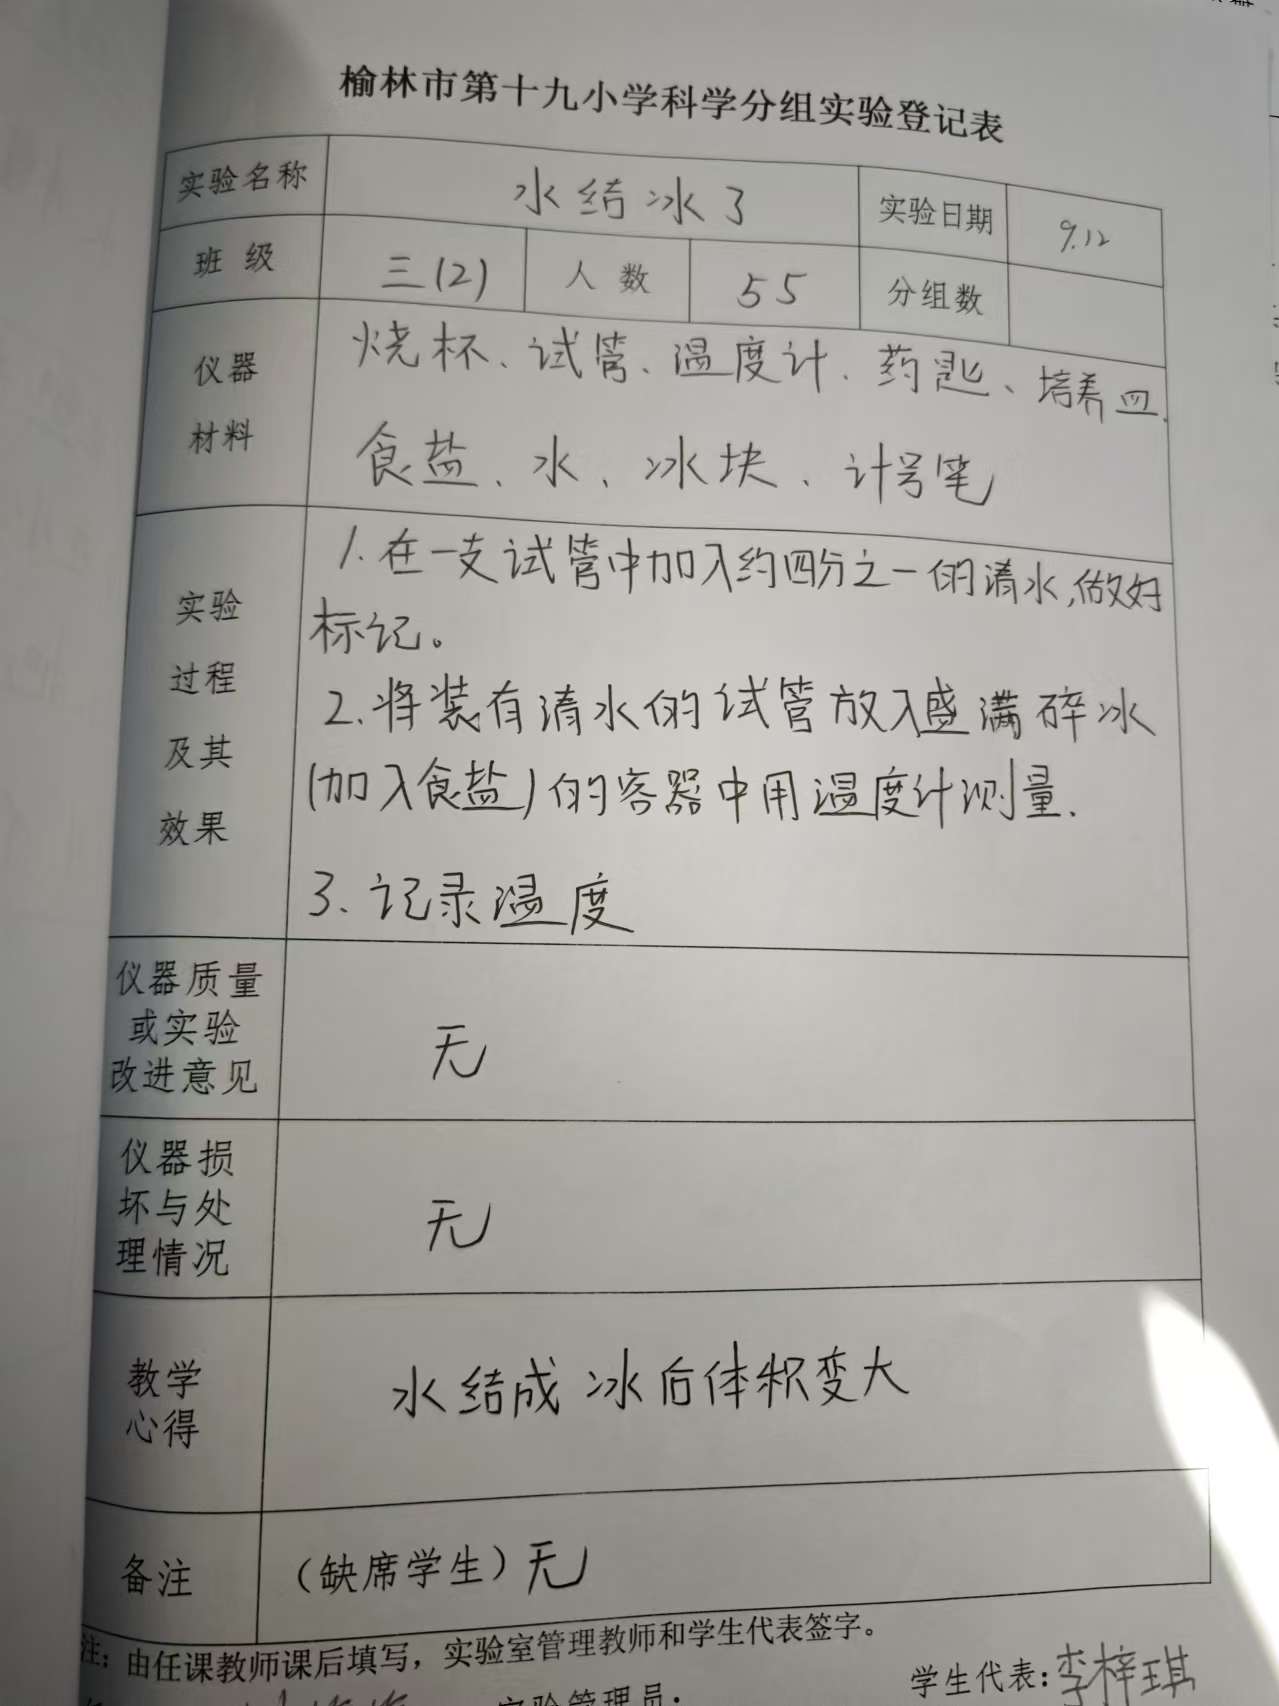 榆林市第十九小学科学分组实验登记表
实验名称 水结冰了 实验日期 9.12
班 级 三(2) 人 数 55 分组数
仪器 烧杯、试管、温度计、药匙、培养皿、
材料 食盐、水、冰块、计号笔
实验 1.在一支试管中加入约四分之一的清水,做好
标记。
过程 2.将装有清水的试管放入盛满碎冰
及其 (加入食盐)的容器中用温度计测量.
效果 3.记录温度
仪器质量
或实验 无
改进意见
仪器损
坏与处 无
理情况
教学 水结成冰后体积变大
心得
备注 (缺席学生)无
注:由任课教师课后填写,实验室管理教师和学生代表签字。
实验管理员: 学生代表:李梓琪